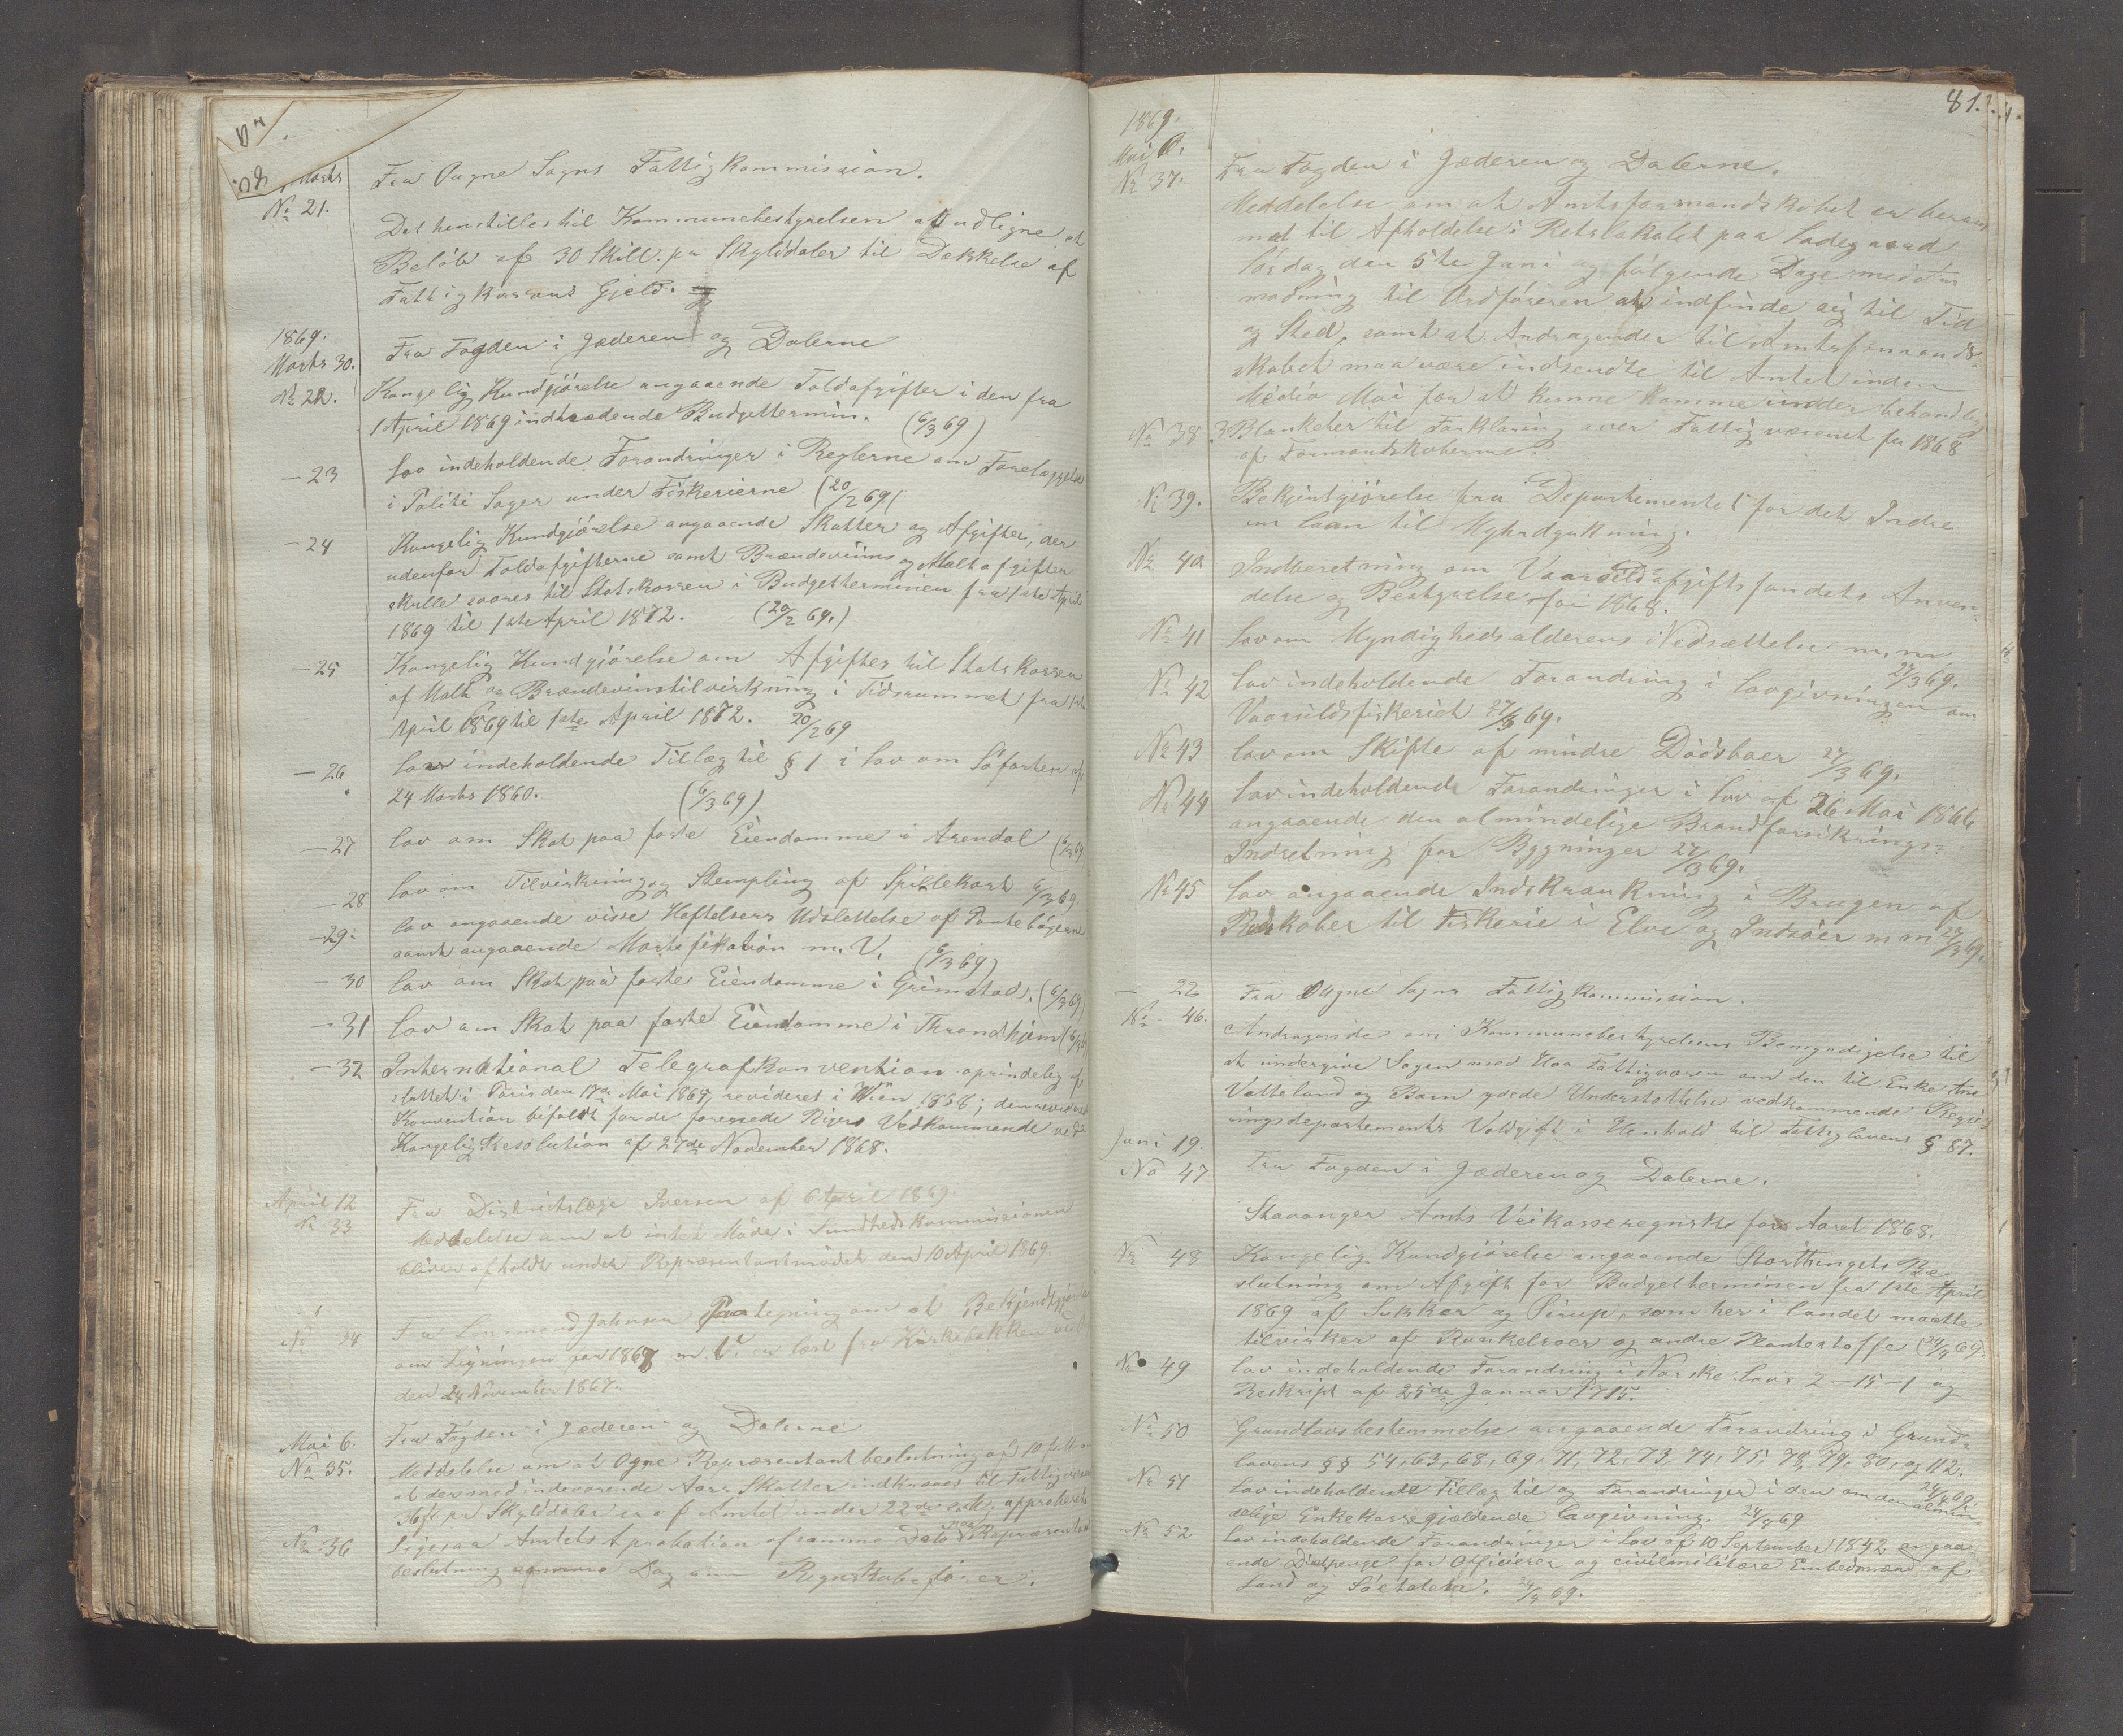 Marts
No 21.
Fra Ougne Sogns Fattigkommission.
Det henstilles til Kommunebestyrelsen at udligne et
Beløb af 30 Skill. pr Skylddaler til Dækkelse af
Fattigkassens Gjeld.
1869.
Marts 30.
Fra Fogden i Jæderen og Dalerne
No 22. Kongelig Kundgjörelse angaaende Toldafgifter i den fra
1 April 1869 indtrædende Budgettermin. (6/3 69)
— 23 Lov indeholdende Forandringer i Reglerne om Forelæggelse
i Politi Sager under Fiskerierne (20/2 69)
— 24 Kongelig Kundgjörelse angaaende Skatter og Afgifter, der
udenfor Toldafgifterne samt Brændeviins og Maltafgiften
skulle svares til Statskassen i Budgetterminen fra 1ste April
1869 til 1ste April 1872. (20/2 69.)
— 25 Kongelig Kundgjörelse om Afgifter til Statskassen
af Malt og Brændevinstilvirkning i Tidsrummet fra 1ste
April 1869 til 1ste April 1872. 20/2 69
— 26 Lov indeholdende Tillæg til § 1 i Lov om Söfarten af
24 Marts 1860. (6/3 69)
— 27 Lov om Skat paa faste Eiendomme i Arendal (6/3 69
— 28 Lov om Tilvirkning og Stempling af Spillekort 6/3 69.
— 29. Lov angaaende visse Heftelsers Udslettelse af Pantebögerne
samt angaaende Mortifikation m. V. (6/3 69)
— 30 Lov om Skat paa faste Eiendomme i Grimstad. (6/3 69)
— 31 Lov om Skat paa faste Eiendomme i Throndhjem (6/3 69
— 32 International Telegrafkonvention oprindelig af
sluttet i Paris den 17de Mai 1865, revideret i Wien 1868; den reviderede
Konvention bifaldt for de forenede Rigers Vedkommende ved
Kongelig Resolution af 27de November 1868.
April 12
No 33
Fra Distriktslæge Iversen af 6 April 1869.
Meddelelse om at intet Møde i Sundhedskommissionen
bliver afholdt under Repræsentantmödet den 10 April 1869.
No 34 Fra Lensmand Johnsen Paategning om at Bekjendtgjörelse
om Ligningen for 1868 m. V. er læst fra Kirkebakken
den 24 November 1867.
Mai 6.
Fra Fogden i Jæderen og Dalerne
No 35. Meddelelse om at Ogne Repræsentantbeslutning af 10
at der med indeværende Aars Skatter indkræves til Fattigvæsen
pr Skylddaler er af Amtet under 22de approberet
No 36 Ligesaa Amtets Aprobation af samme Dato paa Repræsentant
beslutning Dag om Regnskabsförer.
81.
1869.
Mai 6.
Fra Fogden i Jæderen og Dalerne.
No 37. Meddelelse om at Amtsformandskabet er beram
met til Afholdelse i Retslokalet paa Ladegaard
Lördag den 5te Juni og fölgende Dage med An
modning til Ordföreren at indfinde sig til Tid
og Sted, samt at Andragender til Amtsformand-
skabet maa være indsendte til Amtet inden
Medio Mai for at kunne komme under behandling
No 38 3 Blanketer til Forklaring over Fattigvæsenet for 1868
af Formandskaberne.
No 39. Bekjentgjörelse fra Departementet for det Indre
om Laan til Myhrdyrkning.
No 40 Indberetning om Vaarsildafgiftsfondets Anven-
delse og Bestyrelse for 1868.
No 41 Lov om Myndighedsalderens Nedsættelse m. m. 27/3 69.
No 42 Lov indeholdende Forandring i Lovgivningen om
Vaarsildfiskeriet 27/3 69.
No 43 Lov om Skifte af mindre Dødsboer 27/3 69.
No 44 Lov indeholdende Forandringer i Lov af 26 Mai 1866
angaaende den almindelige Brandforsikrings-
Indretning for Bygninger 27/3 69.
No 45 Lov angaaende Indskrænkning i Brugen af
Redskaber til Fiskerie i Elve og Indsöer m m 27/3 69.
— 22 Fra Ougne Sogns Fattigkommission.
No 46. Andragende om Kommunebestyrelsens Bemyndigelse til
at undergive Sagen med Haa Fattigvæsen om den til Enke Ane
Vatteland og Barn ydede Understøttelse vedkommende Regje
ringsdepartements Voldgift i Henhold til Fattiglovens § 87.
Juni 19.
No 47 Fra Fogden i Jæderen og Dalerne.
Stavanger Amts Veikasseregnskab for Aaret 1868.
No 48 Kongelig Kundgjörelse angaaende Storthingets Be-
slutning om Afgift for Budgetterminen fra 1ste April
1869 af Sukker og Sirup, som her i landet maatte
tilvirkes af Runkelroer og andre Plantestoffe (24/4 69.
No 49 Lov indeholdende Forandring i Norske Lovs 2-15-1 og
Reskript af 25de Januar 1715.
No 50 Grundlovsbestemmelse angaaende Forandring i Grund-
lovens §§ 54, 63, 68, 69, 71, 72, 73, 74, 75, 78, 79, 80, og 112. 24/4 69.
No 51 Lov indeholdende Tillæg til og Forandringer i den om den almin-
delige Enkekasse gjældende Lovgivning. 24/4 69
No 52 Lov indeholdende Forandringer i Lov af 10 September 1842 angaa-
ende Diætpenge for Officierer og civilmilitære Embedsmænd af
Land og Söetaten. 24/4 69.